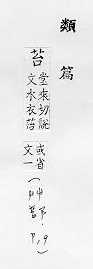 類篇
苔
堂來切說
文水衣苔
或省
文一
(艸部.
P,9)